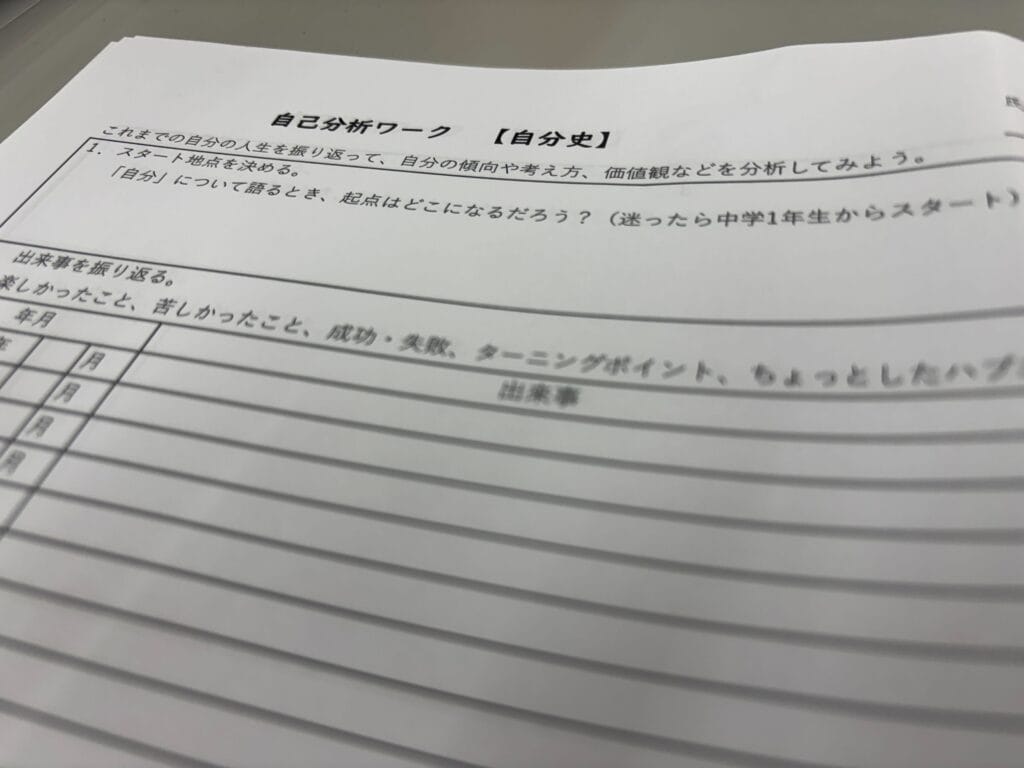 自己分析ワーク 【自分史】
これまでの自分の人生を振り返って、自分の傾向や考え方、価値観などを分析してみよう。
1. スタート地点を決める。
「自分」について語るとき、起点はどこになるだろう？（迷ったら中学1年生からスタート）
出来事を振り返る。
楽しかったこと、苦しかったこと、成功・失敗、ターニングポイント、ちょっとしたハプ
年月
出来事
年 月
月
月
月